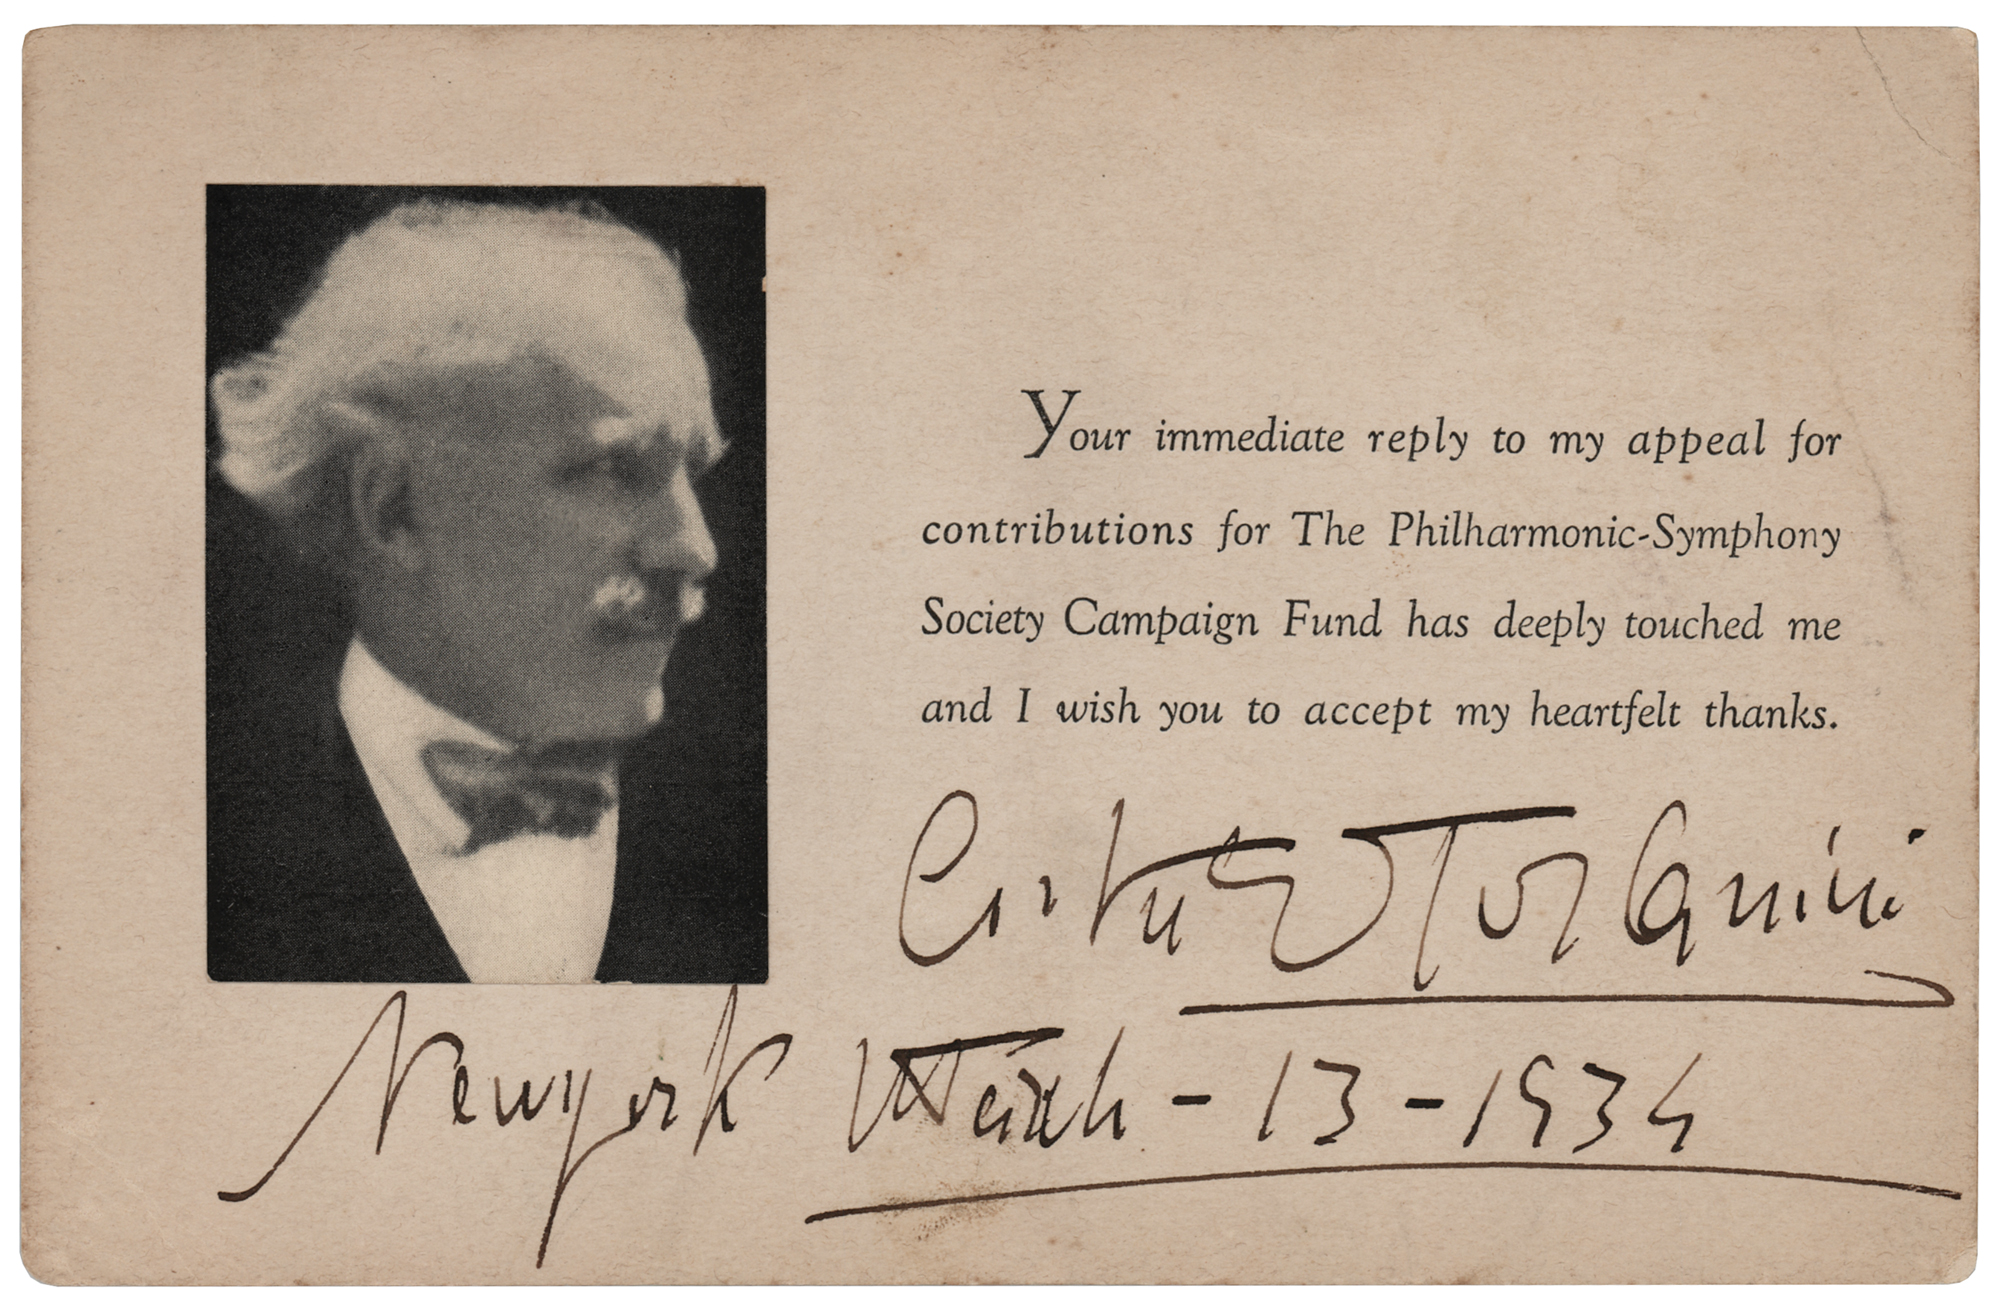 Your immediate reply to my appeal for
contributions for The Philharmonic-Symphony
Society Campaign Fund has deeply touched me
and I wish you to accept my heartfelt thanks.
Arturo Toscanini
Newyork - 13 - 1934